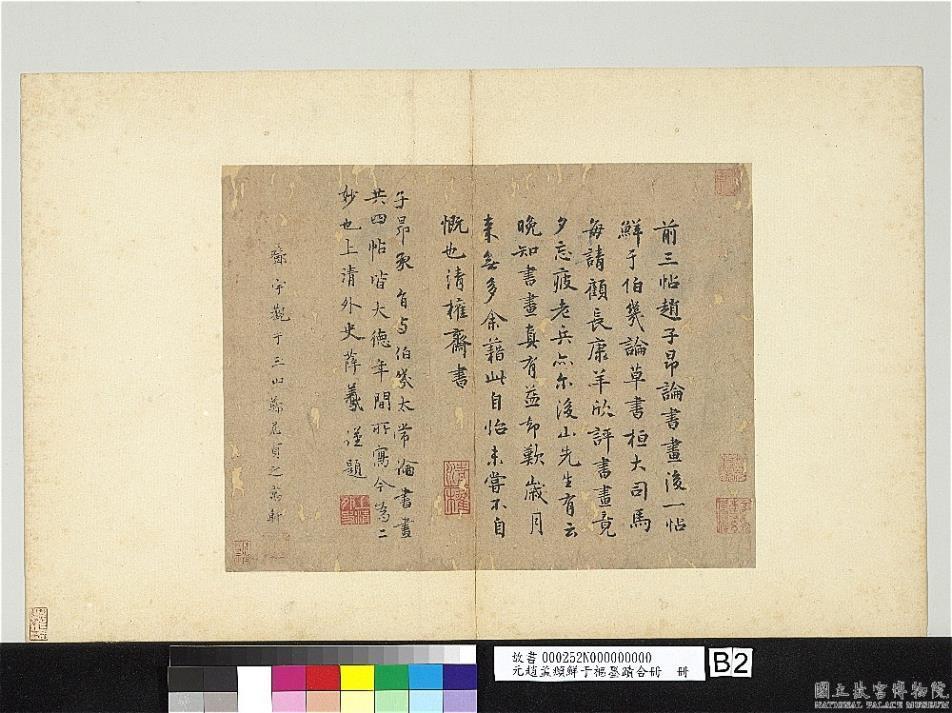 前三帖趙子昂論書畫後一帖
鮮于伯幾論草書桓大司馬
每請顧長康羊欣評書畫竟
夕忘疲老兵亦尔後山先生有云
晚知書畫真有益却歎歲月
來無多余藉此自怡未嘗不自
慨也清權齋書
清權
子昂承旨与伯幾太常論書畫
共四帖皆大德年間所寫今為二
妙也上清外史薛羲謹題
觀于三山
故書 000252N000000000
元趙孟頫鮮于樞墨蹟合冊 冊
B2
國立故宮博物院
NATIONAL PALACE MUSEUM